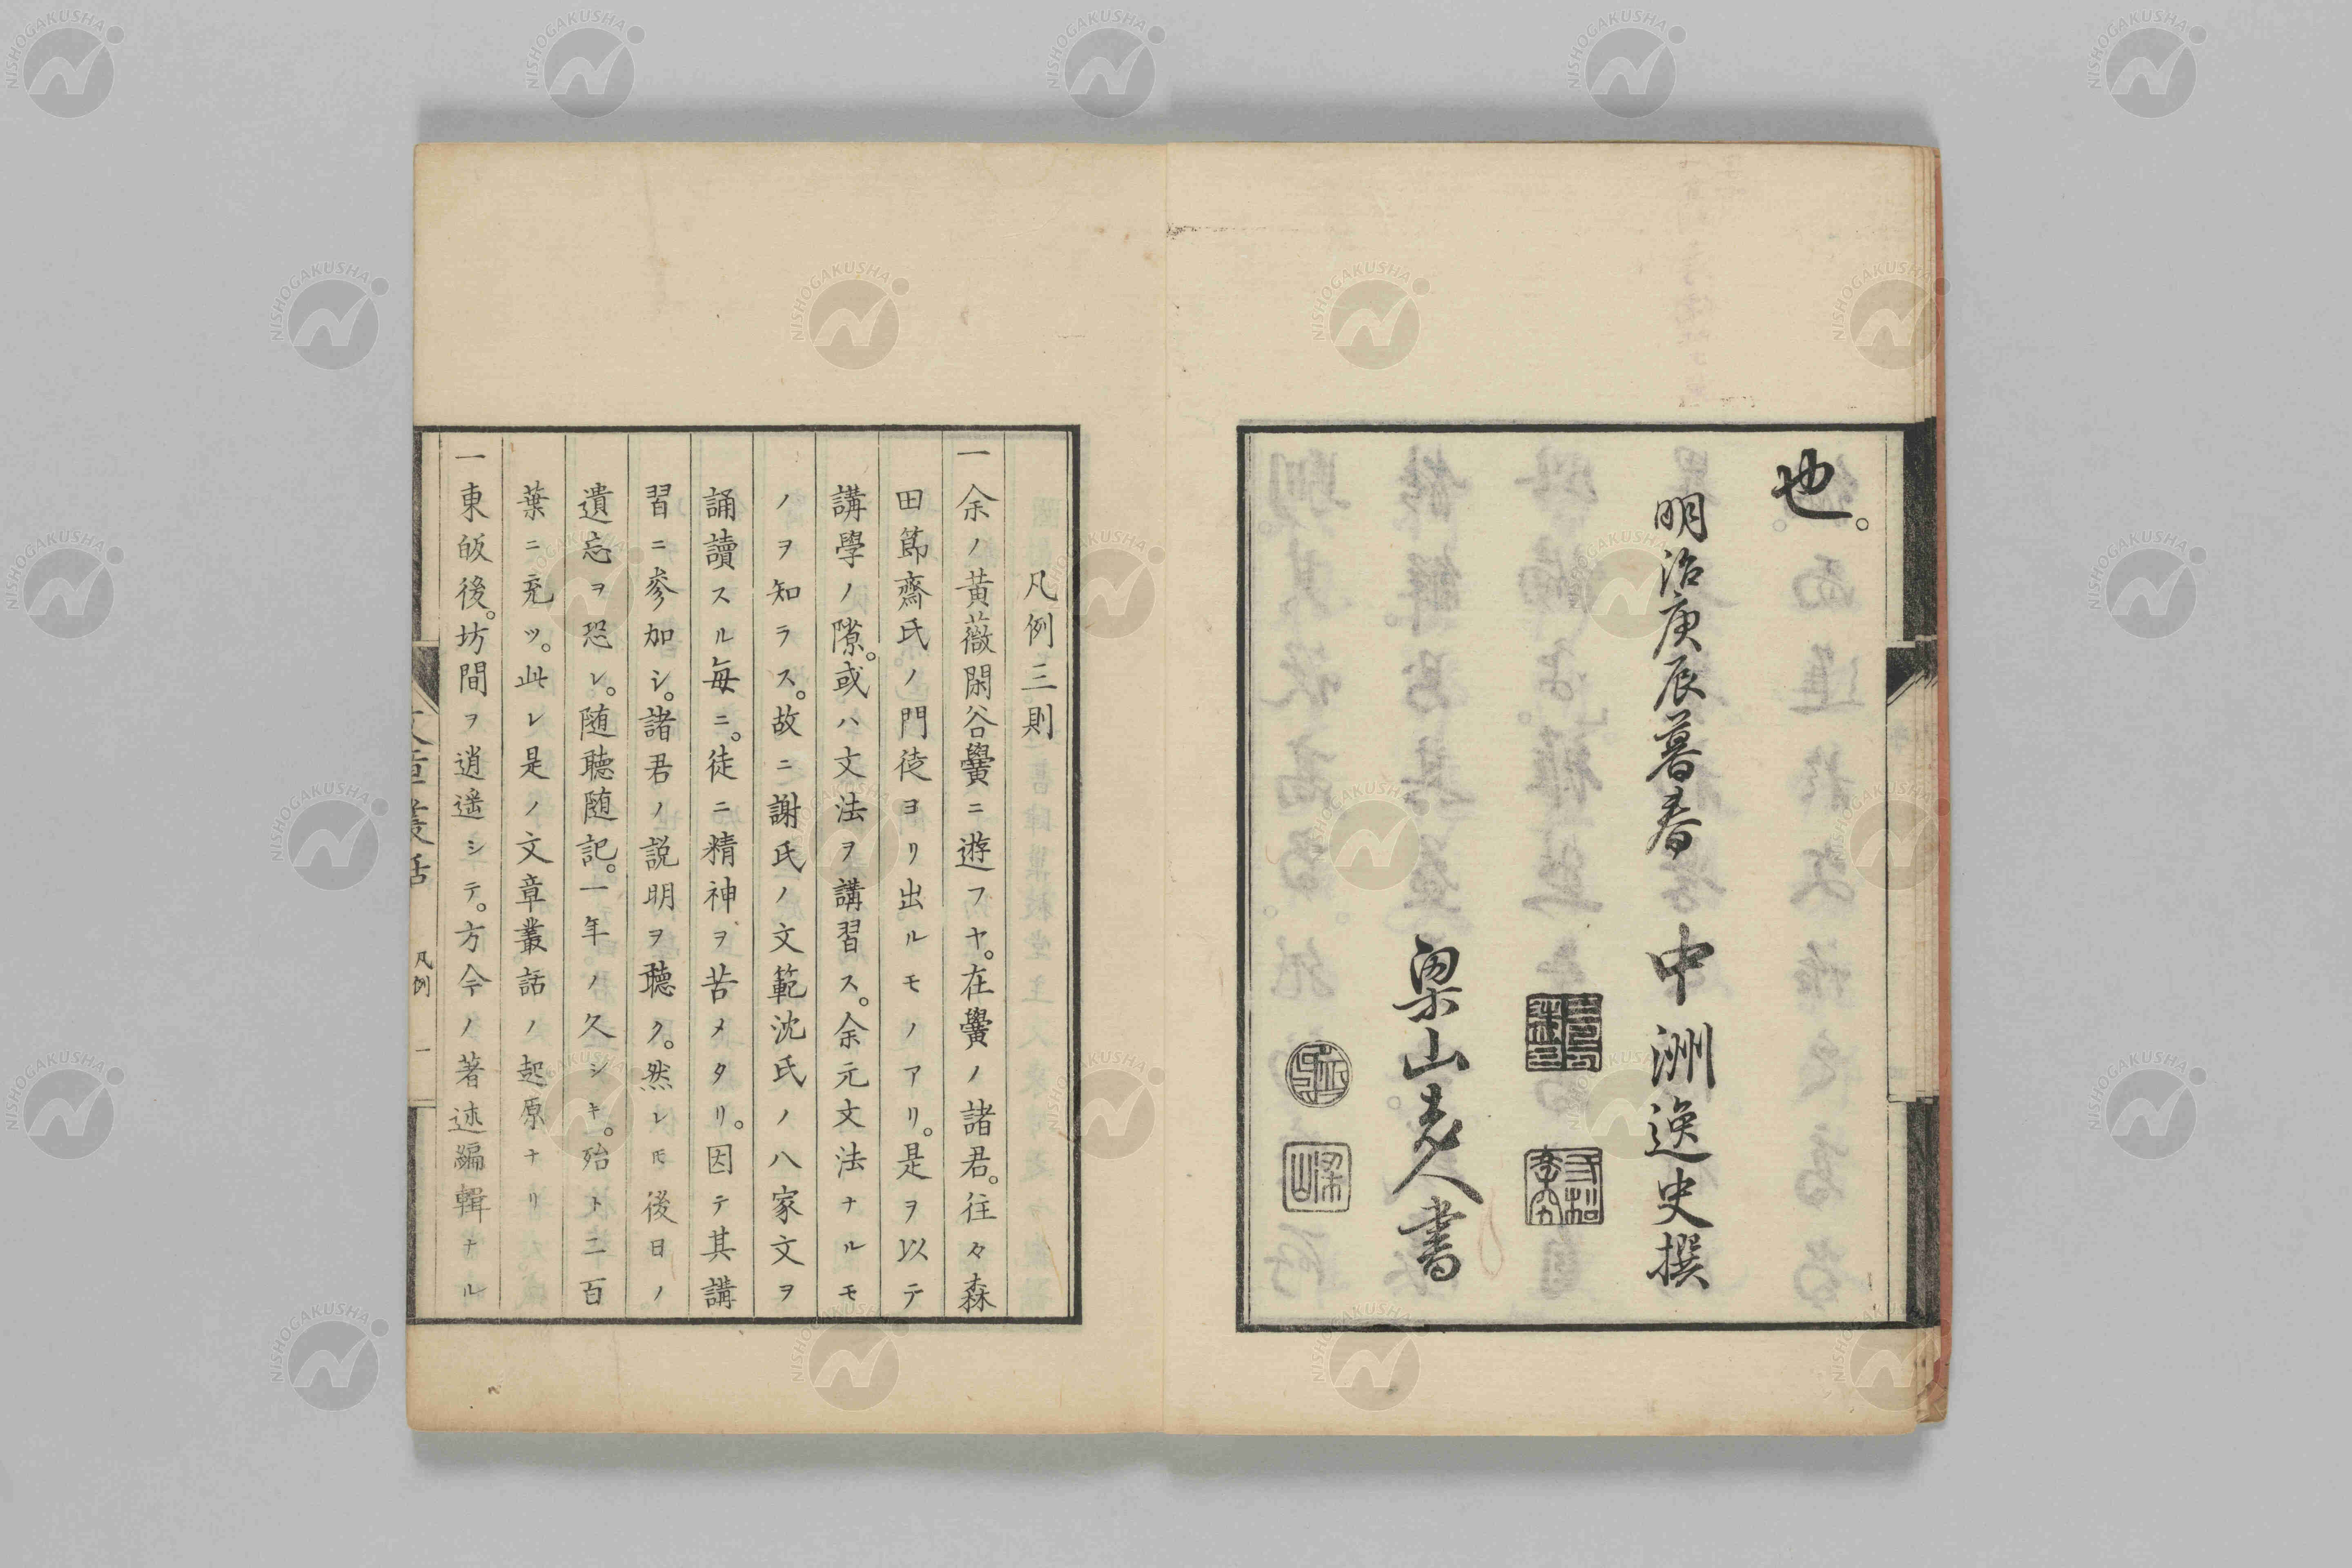 也。
明治庚辰暮春　中洲逸史撰
梁山老人書
梁山
凡例三則
一余ノ黄薇閑谷黌ニ遊フヤ。在黌ノ諸君。往々森
田節齋氏ノ門徒ヨリ出ルモノアリ。是ヲ以テ
講學ノ隙。或ハ文法ヲ講習ス。余元文法ナルモ
ノヲ知ラス。故ニ謝氏ノ文範沈氏ノ八家文ヲ
誦讀スル毎ニ。徒ニ精神ヲ苦メタリ。因テ其講
習ニ參加シ。諸君ノ説明ヲ聽ク。然レ𪜈後日ノ
遺忘ヲ恐レ。随聽随記。一年ノ久シキ。殆ト二百
葉ニ充ツ。此レ是ノ文章叢話ノ起原ナリ
一東皈後。坊間ヲ逍遥シテ。方今ノ著述編輯ナル
文章叢話　凡例　一
NISHOGAKUSHA